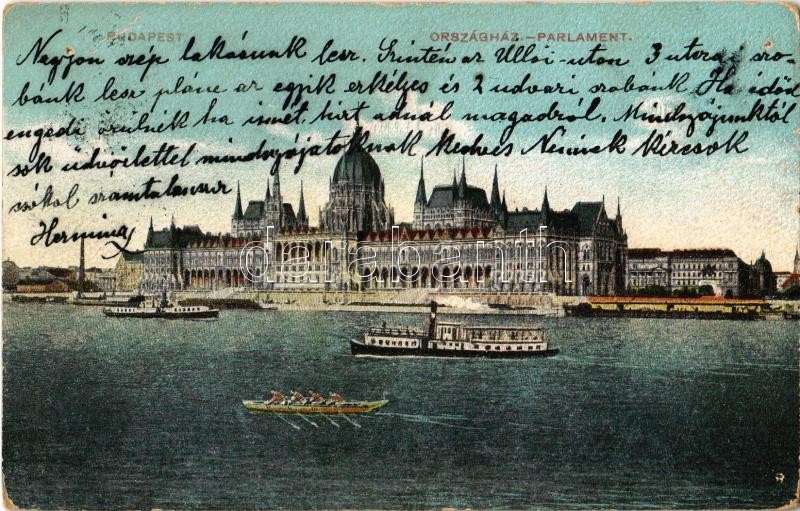 BUDAPEST.
ORSZÁGHÁZ.—PARLAMENT.
Nagyon szép lakásunk lesz. Szintén az Üllői-uton 3 utczai szo-
bánk lesz pláne az egyik erkélyes és 2 udvari szobánk Ha időd
engedi örülnék ha ismét hirt adnál magadról. Mindnyájunktól
sok üdvözlettel mindnyájatoknak kedves Neninek kézcsók
csókol számtalanszor
Hermina
databanth